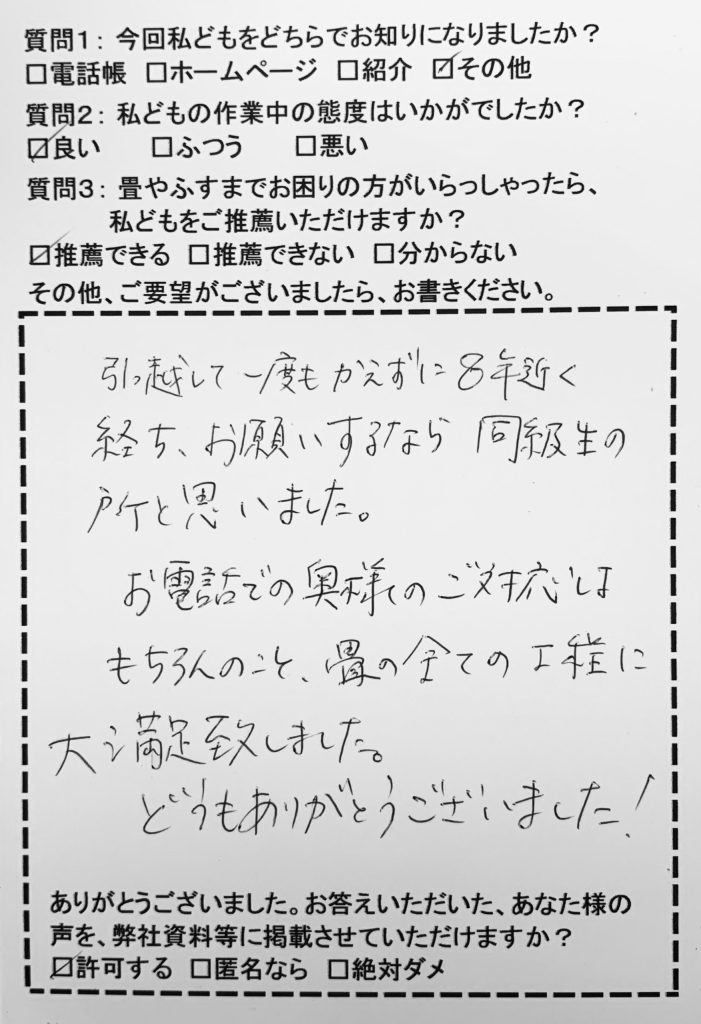 質問1：今回私どもをどちらでお知りになりましたか？
□電話帳 □ホームページ □紹介 ☑その他
質問2：私どもの作業中の態度はいかがでしたか？
☑良い □ふつう □悪い
質問3：畳やふすまでお困りの方がいらっしゃったら、
私どもをご推薦いただけますか？
☑推薦できる □推薦できない □分からない
その他、ご要望がございましたら、お書きください。
引っ越して一度もかえずに8年近く
経ち、お願いするなら同級生の
所と思いました。
お電話での奥様のご対応は
もちろんのこと、畳の全ての工程に
大満足致しました。
どうもありがとうございました！
ありがとうございました。お答えいただいた、あなた様の
声を、弊社資料等に掲載させていただけますか？
☑許可する □匿名なら □絶対ダメ